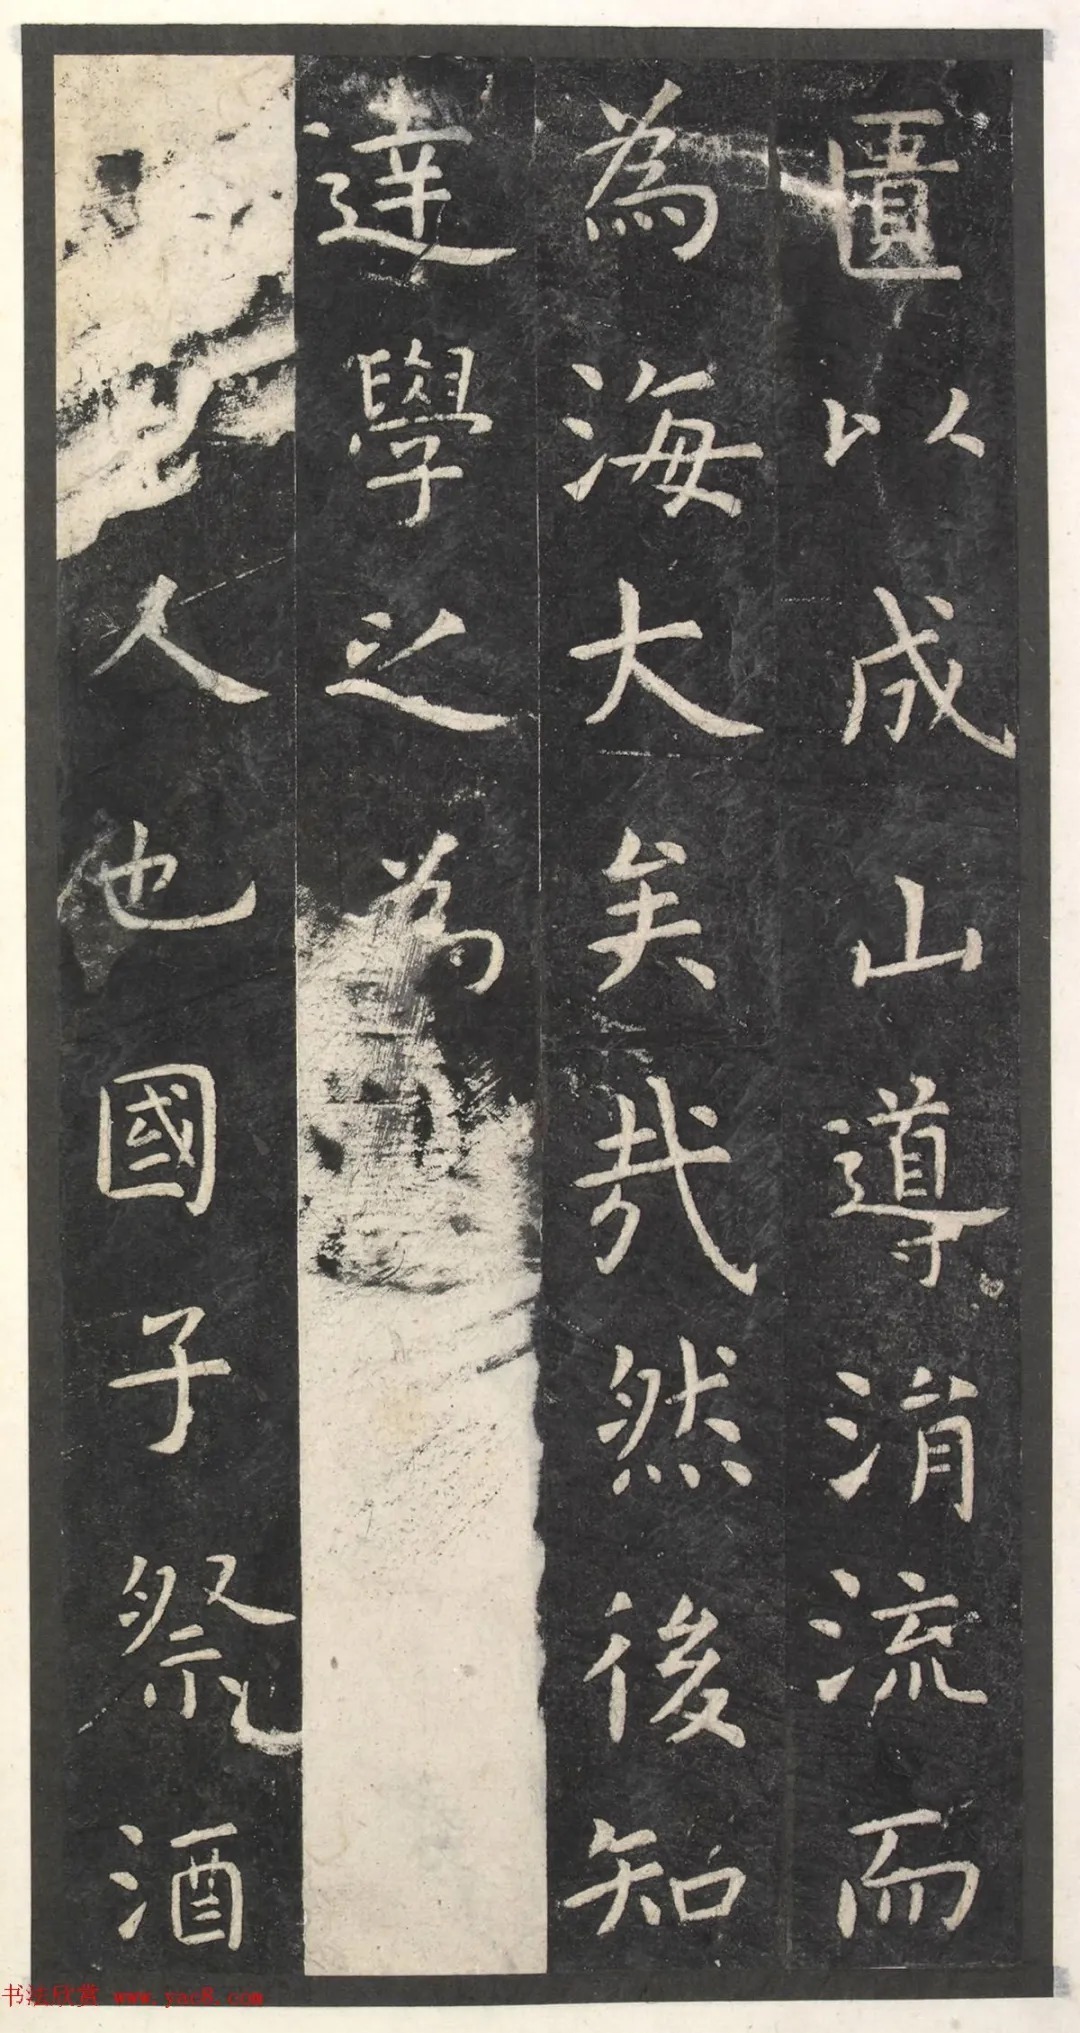 匱以成山導涓流而
為海大矣哉然後知
達學之為
人也國子祭酒
书法欣赏 www.yac8.com